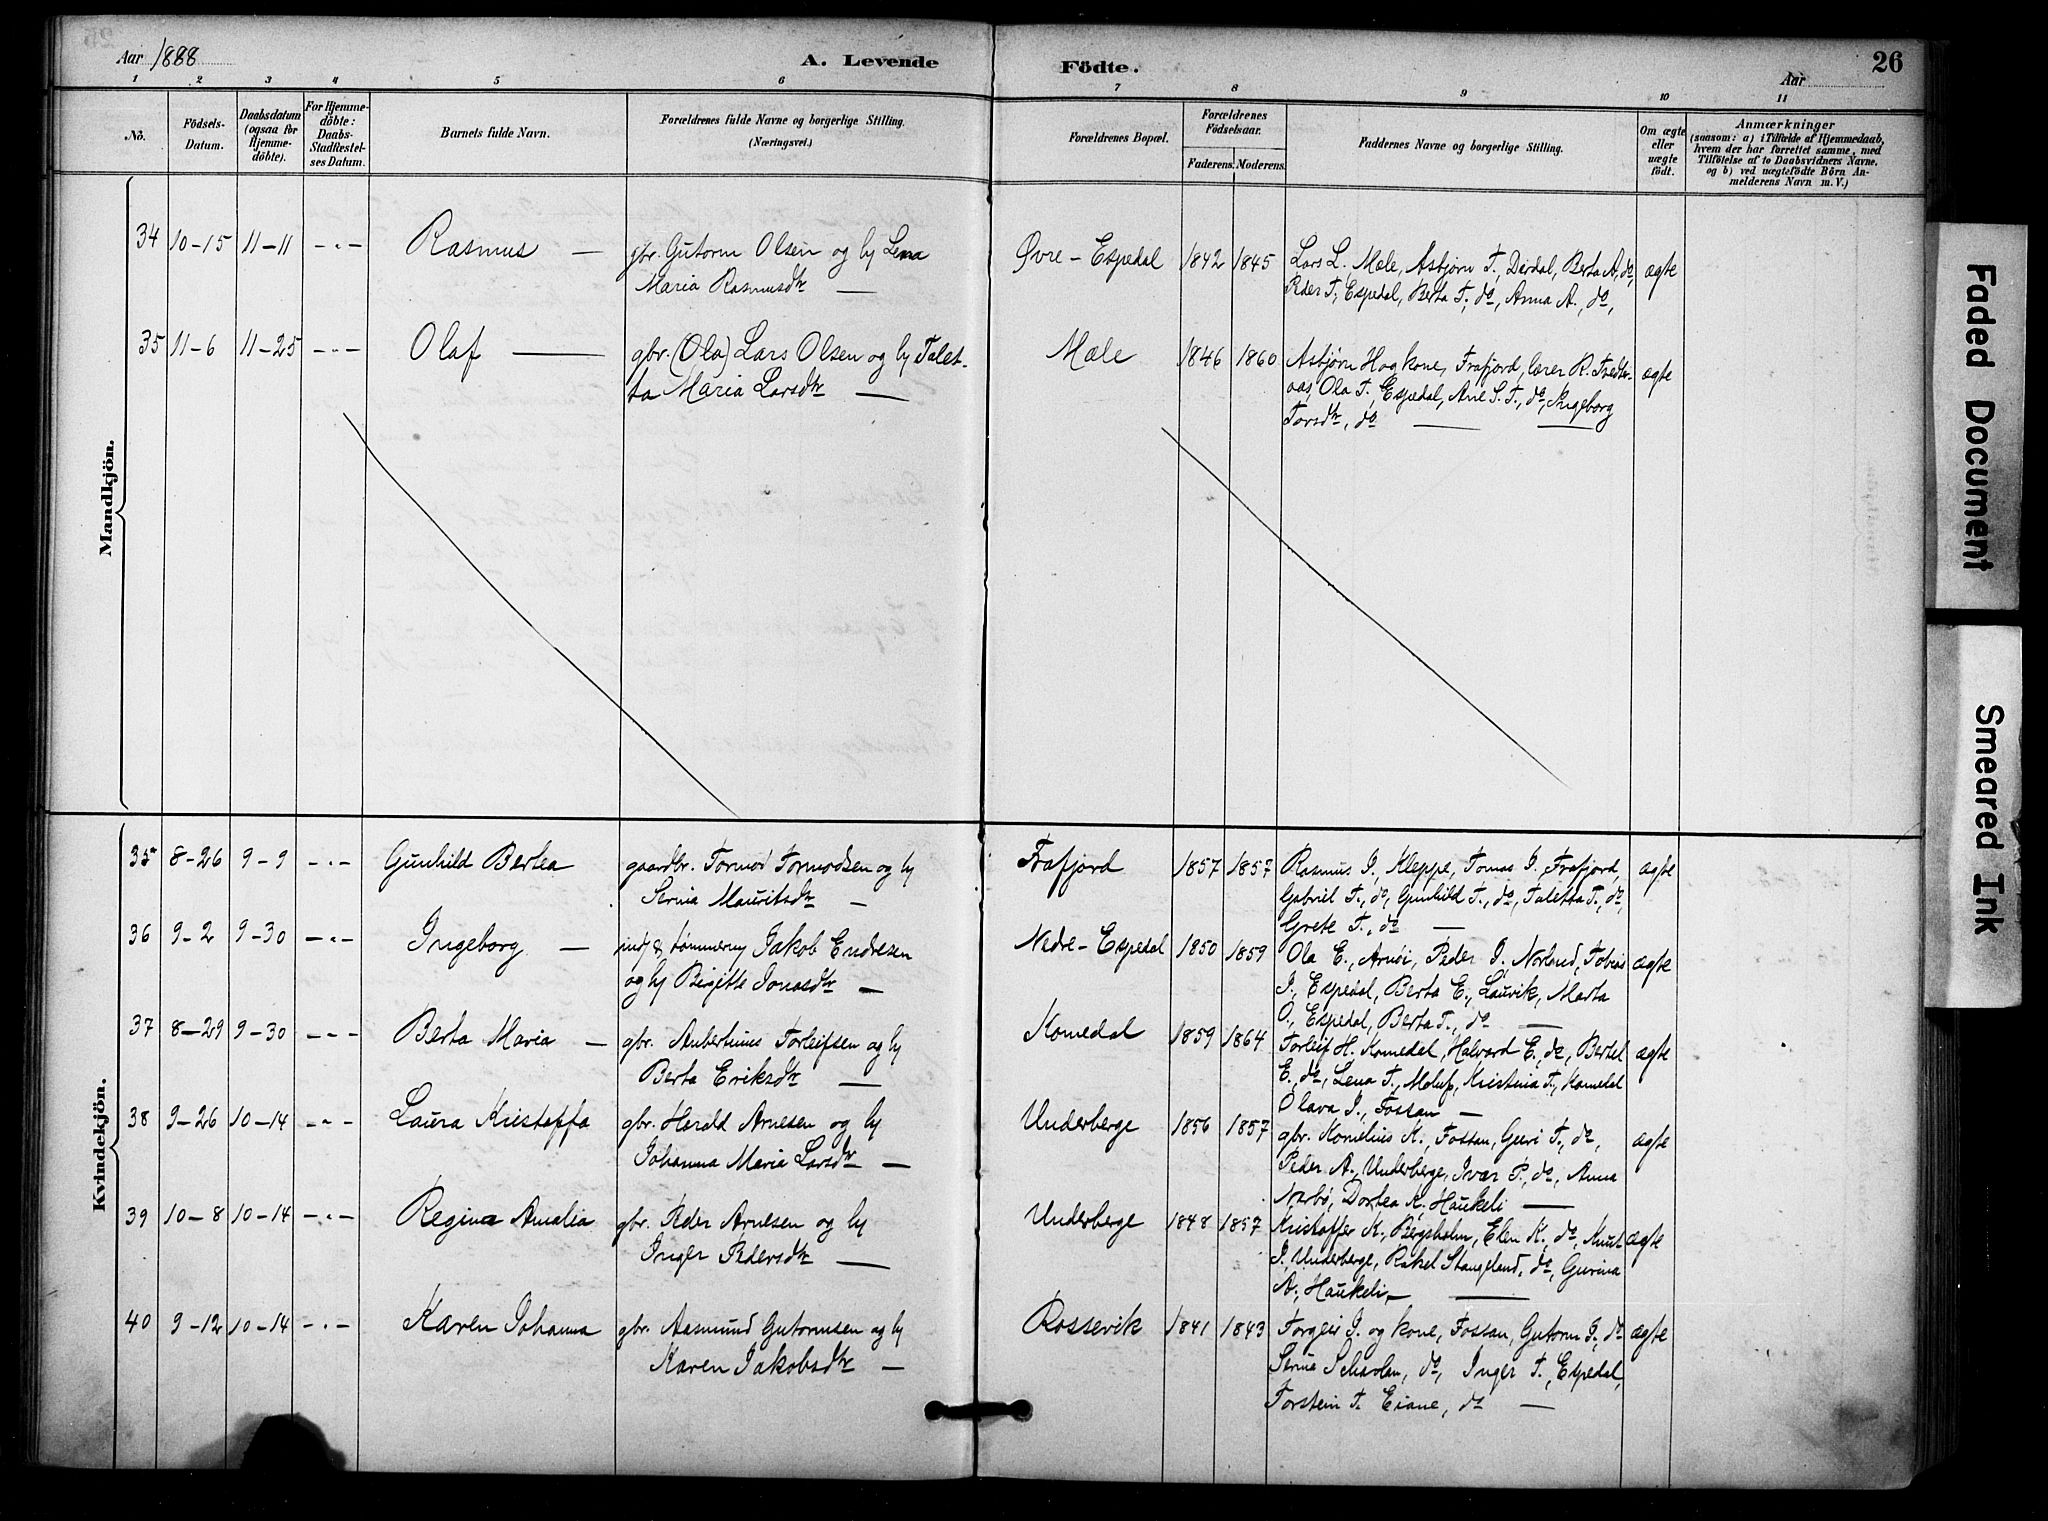 Aar 1888
A. Levende
Födte.
Aar
26
1 2 3 4 5 6 7 8 9 10 11
No.
Födsels-
Datum.
Daabsdatum
(ogsaa for
Hjemme-
döbte).
For Hjemme-
döbte:
Daabs-
Stadfæstel-
ses Datum.
Barnets fulde Navn.
Forældrenes fulde Navne og borgerlige Stilling.
(Næringsvei.)
Forældrenes Bopæl.
Forældrenes
Födselsaar.
Faderens. Moderens.
Faddernes Navne og borgerlige Stilling.
Om ægte
eller
uægte
födt.
Anmærkninger
(saasom: a) i Tilfælde af Hjemmedaab,
hvem der har forrettet samme, med
Tilföielse af to Daabsvidners Navne.
og b) ved uægtefödte Börn An-
melderens Navn m. V.)
Mandkjön.
34 10-15 11-11 -"- Rasmus — gbr. Gutorm Olsen og hj Lena
Maria Rasmusdtr —
Øvre-Espedal 1842 1845 Lars L., Mæle, Asbjørn T., Dørdal, Berta A., do,
Peder T., Espedal, Berta T., do, Anna A., do,
ægte
35 11-6 11-25 -"- Olaf — gbr. (Ola) Lars Olsen og hj Talet-
ta Maria Larsdtr —
Mæle 1846 1860 Asbjørn H og kone, Frafjord, lærer R. Tvedter-
aas, Ola T., Espedal, Ane S. T., do, Ingeborg
Torsdtr, do —
ægte
Kvindekjön.
35 8-26 9-9 -"- Gunhild Bertea gaardbr. Tormod Tormodsen og hj
Serina Mauritsdtr —
Frafjord 1857 1857 Rasmus I., Kleppe, Tomas I., Frafjord,
Gabriel T., do, Gunhild T., do, Taletta T., do,
Grete T., do —
ægte
36 9-2 9-30 -"- Ingeborg — indf & tømmerm Jakob Endresen
og hj Birgitte Jonasdtr —
Nedre-Espedal 1850 1859 Ola E., Arnøi, Peder I., Norland, Tobias
I., Espedal, Berta E., Lauvik, Marta
O., Espedal, Berta T., do —
ægte
37 8-29 9-30 -"- Berta Maria — gbr. Anbertinus Torleifsen og hj
Berta Eriksdtr —
Komedal 1859 1864 Torleif H. Komedal, Halvard E., do, Bertel
E., do, Lena T., Molup, Kristina T., Komedal
Olava I., Fossan —
ægte
38 9-26 10-14 -"- Laura Kristoffa gbr. Harald Arnesen og hj
Johanna Maria Larsdtr —
Underberge 1856 1857 gbr. Kornelius K., Fossan, Guri T., do,
Peder A., Underberge, Ivar P., do, Anna
Norbø, Dortea K., Haukeli —
ægte
39 10-8 10-14 -"- Regina Amalia gbr. Peder Arnesen og hj
Inger Pedersdtr —
Underberge 1848 1857 Kristoffer K., Bergsholm, Elen K., do, Knut
I., Underberge, Rakel Stangeland, do, Gurina
A., Haukeli —
ægte
40 9-12 10-14 -"- Karen Johanna gbr. Aasmund Gutormsen og hj
Karen Jakobsdtr —
Rossevik 1841 1843 Torgeir I. og kone, Fossan, Gutorm I., do
Serina, do, Inger T., Espedal,
Torstein T. Eiane, do —
ægte
Faded Document
Smeared Ink